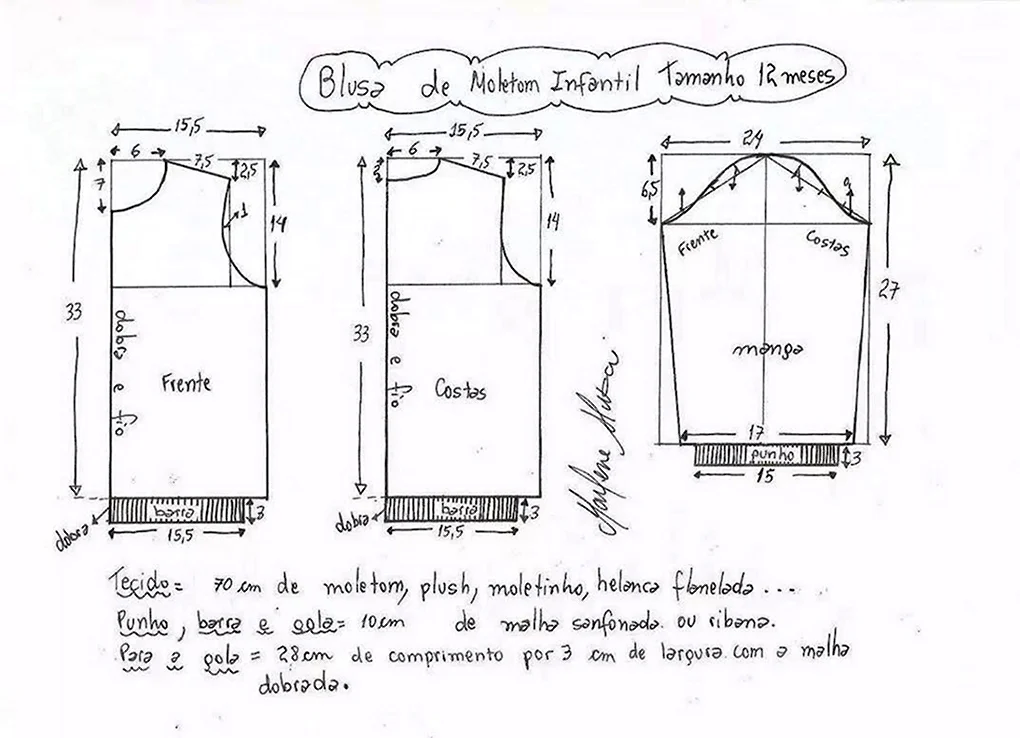 Blusa de Moletom Infantil Tamanho 12 meses
15,5
6
7,5
2,5
7
1
14
33
dobra e fio
Frente
barra
3
dobra
15,5
15,5
6
7,5
2,5
2
14
33
dobra e fio
Costas
barra
3
dobra
15,5
24
6,5
Frente
Costas
27
manga
17
punho
3
15
Marlene Mukai
Tecido = 70 cm de moletom, plush, moletinho, helanca flanelada ...
Punho, barra e gola = 10cm de malha sanfonada ou ribana.
Para a gola = 28cm de comprimento por 3 cm de largura com a malha
dobrada.